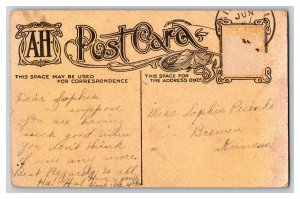 A·H
Post Card
JUN
THIS SPACE MAY BE USED FOR CORRESPONDENCE
THIS SPACE FOR THE ADDRESS ONLY.
Dear Sophia
I suppose
you are having
such good times
you don't think
of me any more.
Best Regards to all,
Ha! Ha! Have a good
time
Miss Sophia Pecinka
Bremen
Kansas